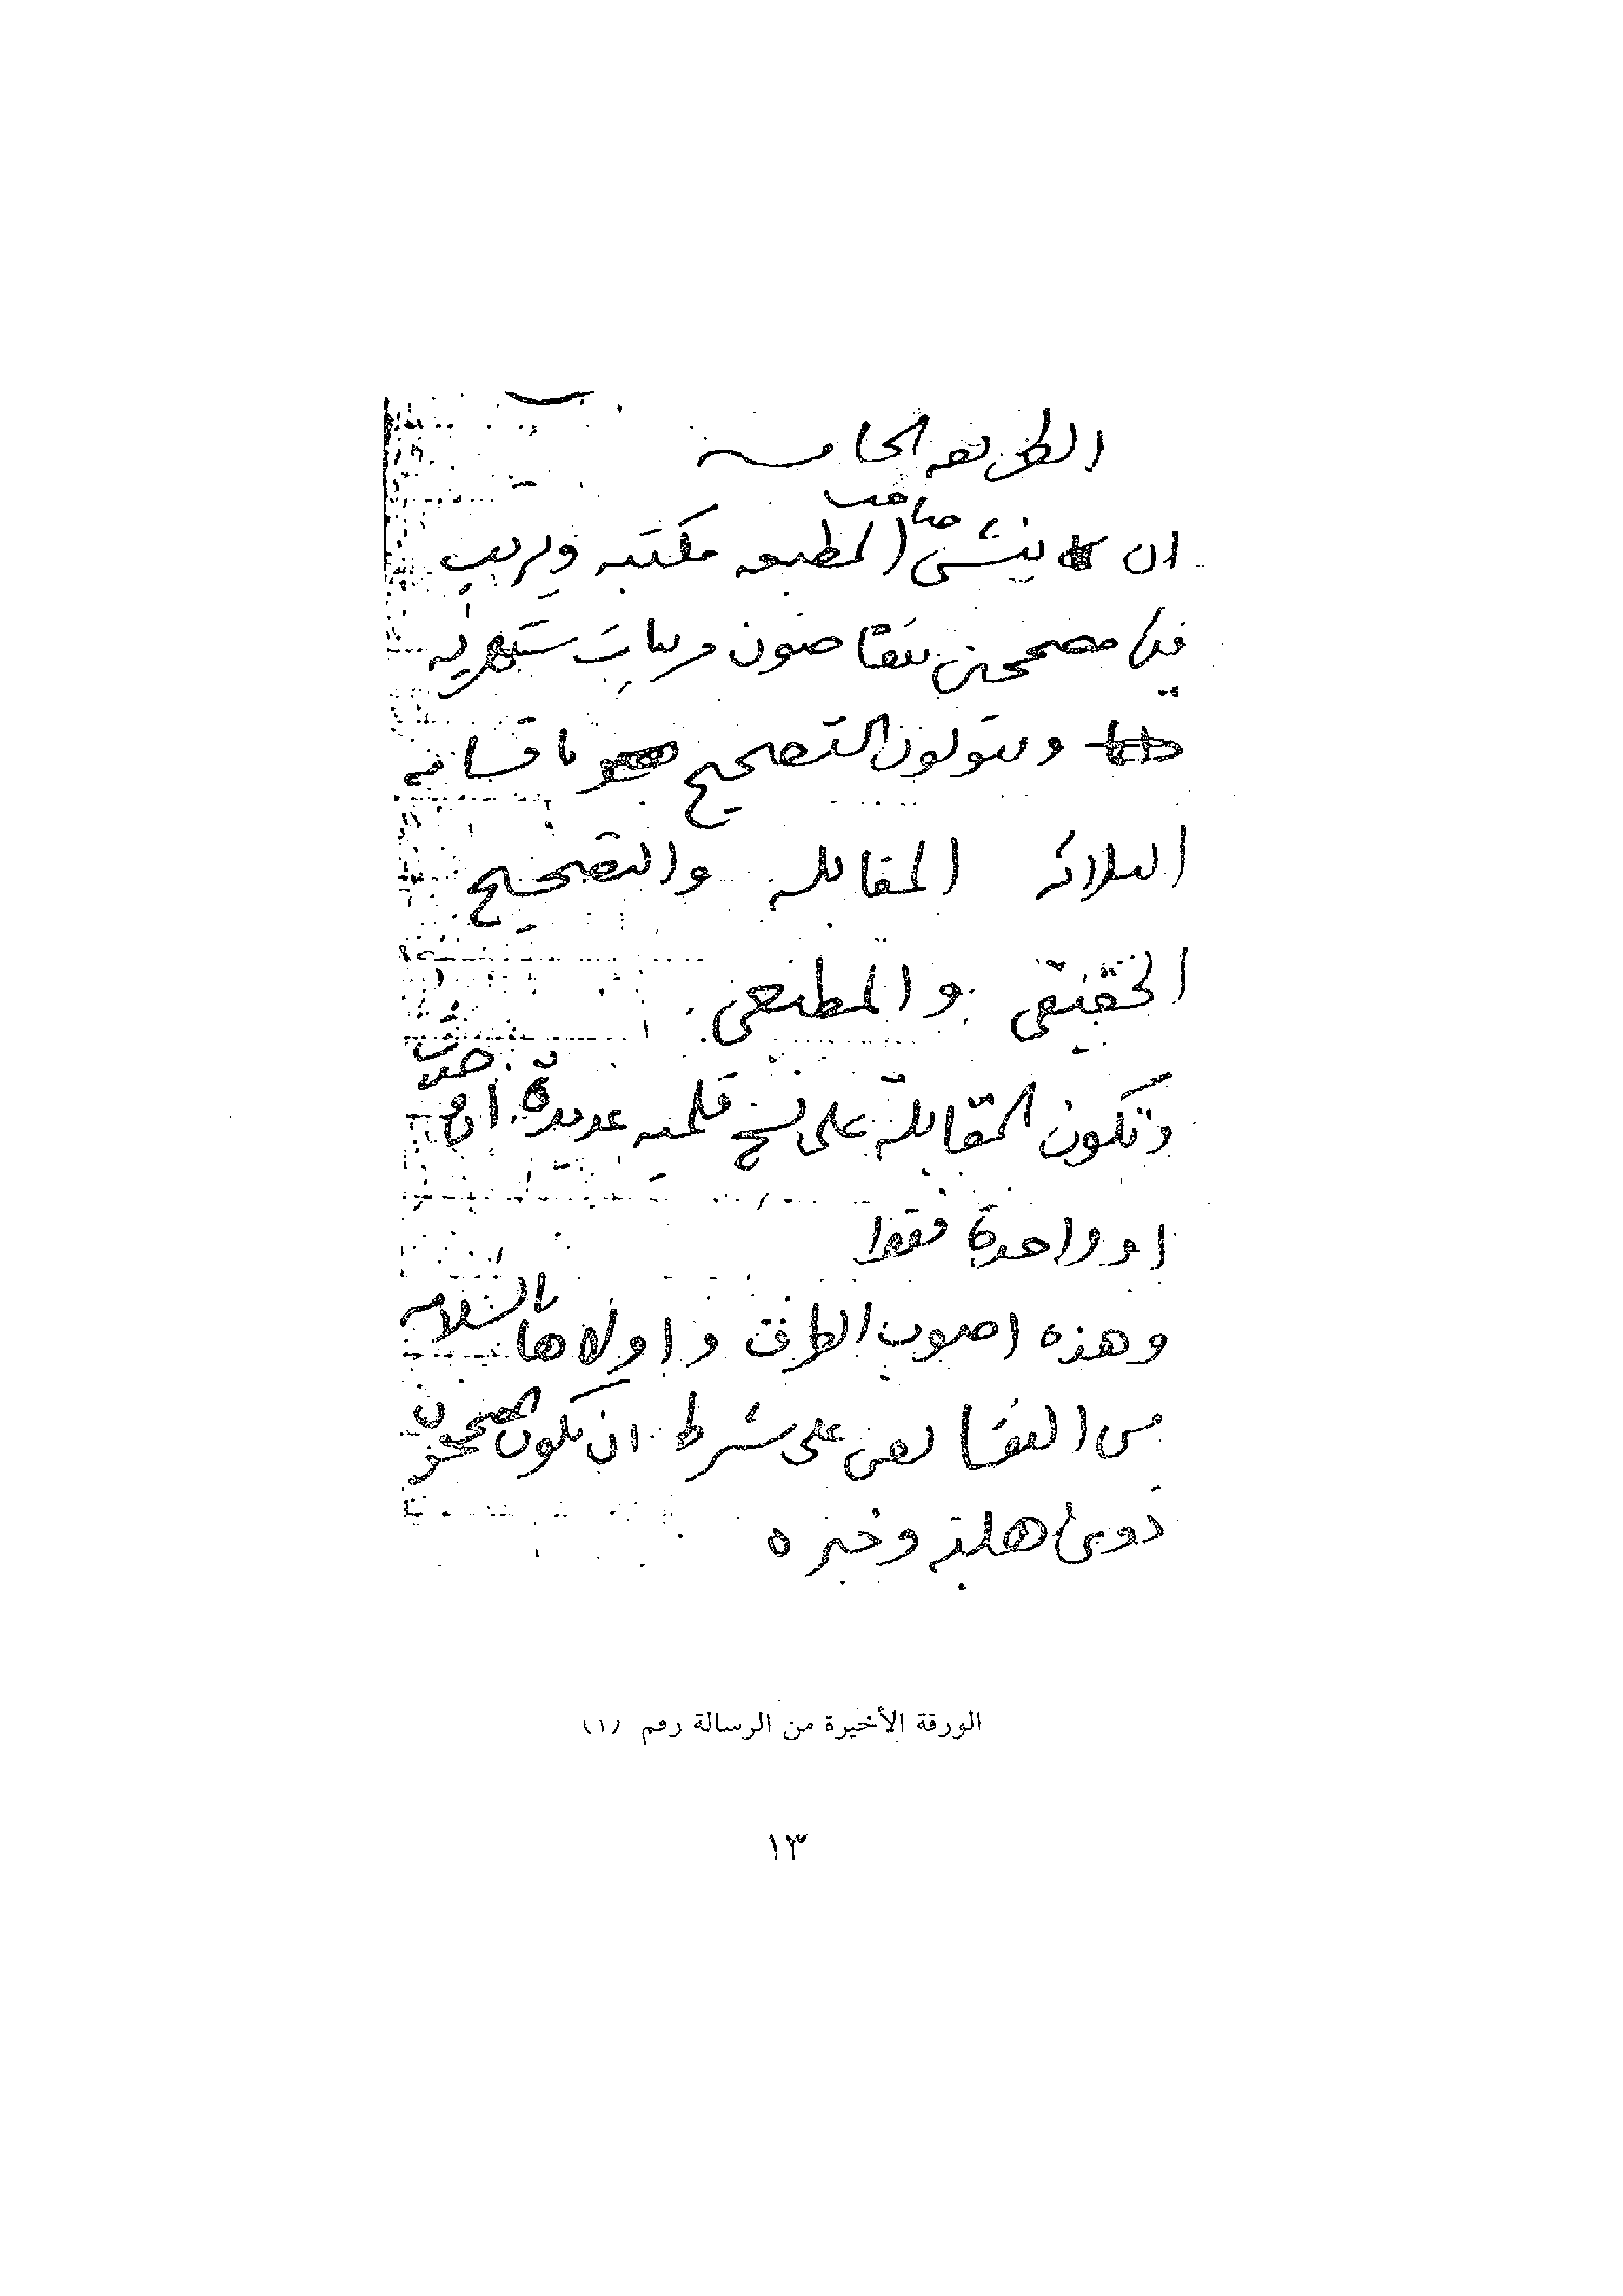 الطريقه الخامسه
ان ينشئ صاحب المطبعه مكتبه ويرتب
فيها مصححين يتقاضون مرتبات شهريه
دائما ويتولون التصحيح باقسامه
الثلاثه المقابله والتصحيح
الحقيقى والمطبعى
وتكون المقابلة على نسخ قلميه عديدة ان وجدت
او واحدة فقط
وهذه اصوب الطرق واولاها بالسلامه
من النقائص على شرط ان يكون المصححون
ذوى اهلية وخبره
الورقة الأخيرة من الرسالة رقم (١)
١٣